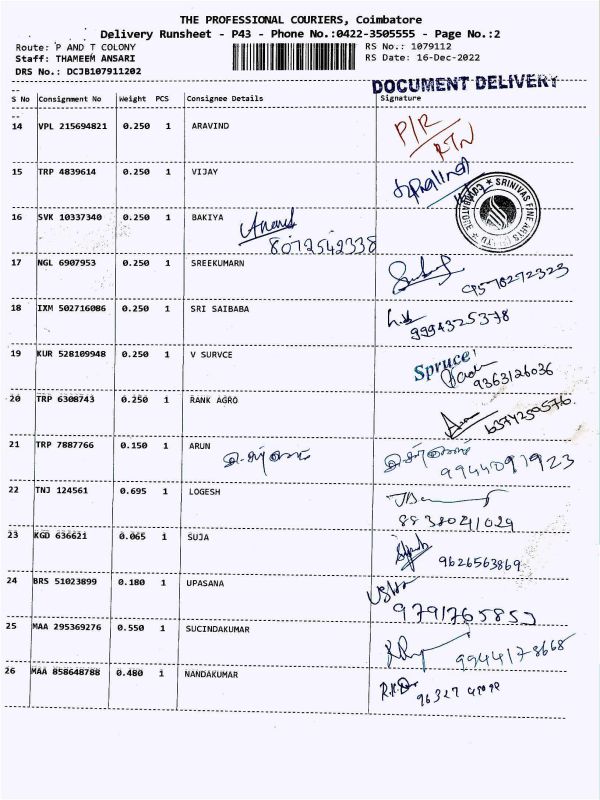 THE PROFESSIONAL COURIERS, Coimbatore
Delivery Runsheet - P43 - Phone No.:0422-3505555 - Page No.:2
Route: P AND T COLONY RS No.: 1079112
Staff: THAMEEM ANSARI RS Date: 16-Dec-2022
DRS No.: DCJB107911202
DOCUMENT DELIVERY
--
S No Consignment No Weight PCS Consignee Details Signature
--
14 VPL 215694821 0.250 1 ARAVIND P/R RTN
15 TRP 4839614 0.250 1 VIJAY
SRINIVAS FINE ARTS COIMBATORE
16 SVK 10337340 0.250 1 BAKIYA
8072542338
17 NGL 6907953 0.250 1 SREEKUMARN 9578272323
18 IXM 502716086 0.250 1 SRI SAIBABA 9994325378
19 KUR 528109948 0.250 1 V SURVCE Spruce
9363126036
20 TRP 6308743 0.250 1 RANK AGRO 6374250576
21 TRP 7887766 0.150 1 ARUN
9944091923
22 TNJ 124561 0.695 1 LOGESH
8838041029
23 KGD 636621 0.065 1 SUJA 9626563869
24 BRS 51023899 0.180 1 UPASANA
25 MAA 295369276 0.550 1 SUCINDAKUMAR 9944178668
26 MAA 858648788 0.480 1 NANDAKUMAR